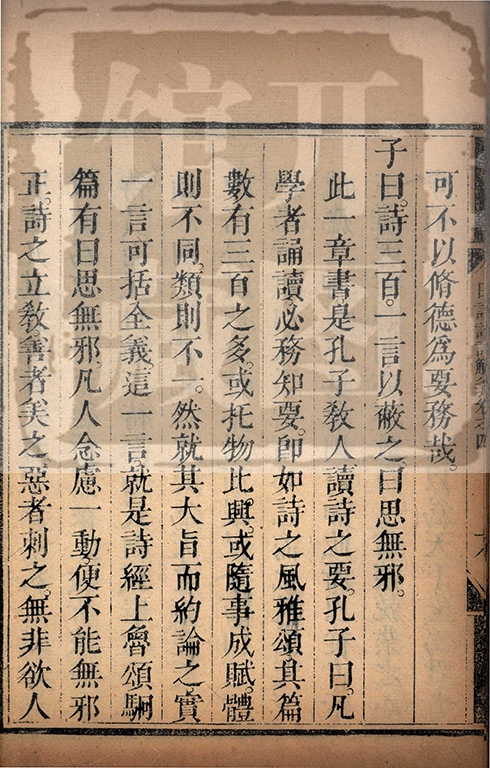 可不以脩德為要務哉。
子曰。詩三百。一言以蔽之。曰思無邪。
此一章書是孔子教人讀詩之要。孔子曰。凡
學者誦讀。必務知要。卽如詩之風雅頌。其篇
數有三百之多。或托物比興。或隨事成賦。體
則不同。類則不一。然就其大旨而約論之。實
一言可括全義。這一言就是詩經上魯頌駉
篇有曰思無邪。凡人念慮一動。便不能無邪
正。詩之立教。善者美之。惡者刺之。無非欲人